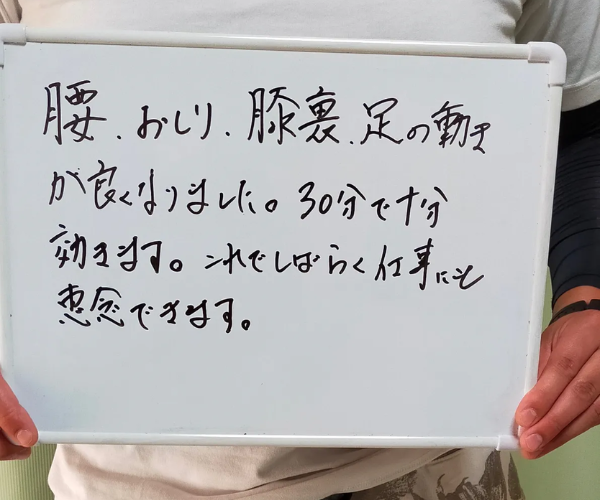 腰、おしり、膝裏、足の動き
が良くなりました。30分で十分
効きます。これでしばらく仕事にも
専念できます。